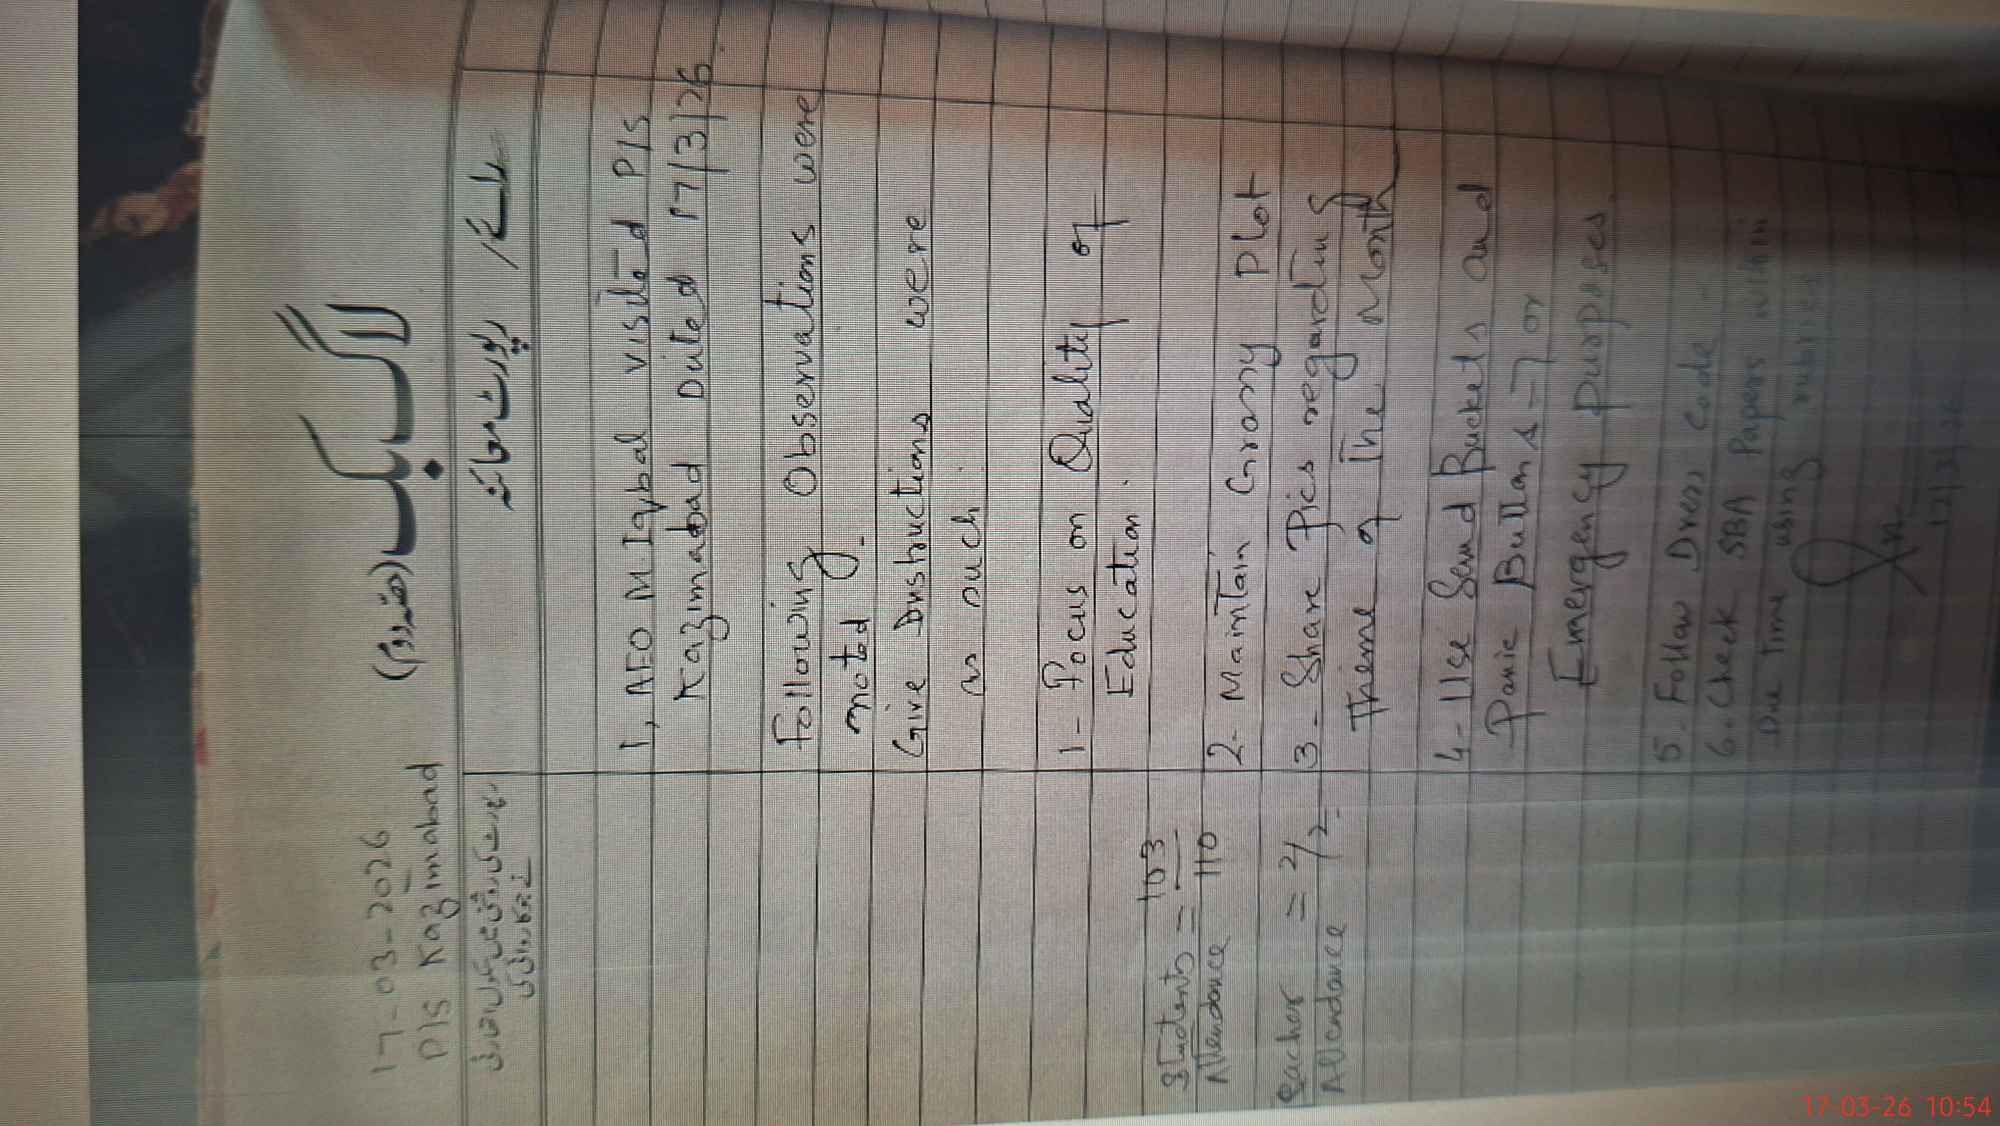 17-03-2026
P/S Kazimabad
لاگ بک (حصہ دوم)
رپورٹ معائنہ / رائے
1, AEO M Iqbal visited P/S
Kazimabad Dated 17/3/26.
Following Observations were
noted.
Give Instructions were
as such.
1- Focus on Quality of
Education.
2- Maintain Grassy Plot
3- Share Pics regarding
Theme of the Month
4- Use Sand Buckets and
Panic Buttons
Emergency purposes.
5. Follow Dress Code -
6- Check SBA Papers within
Due Time using rubrics
17/3/26
Students = 103
Attendance 110
Teacher = 2/2
Attendance
17-03-26 10:54